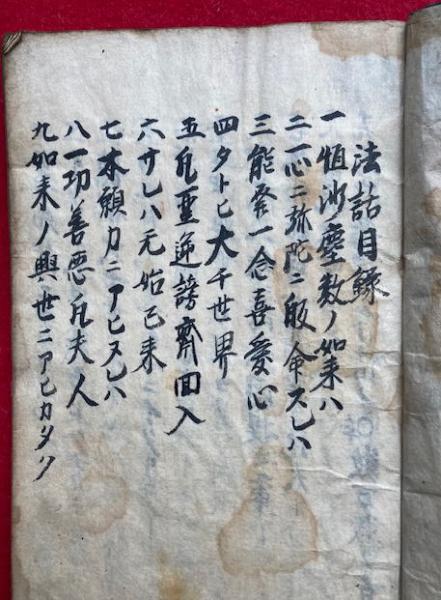 法話目録
一恒沙塵数ノ如来ハ
二一心ニ弥陀ニ皈命スレハ
三能發一念喜愛心
四タトヒ大千世界
五凡聖逆謗齊回入
六サレハ无始已来
七本願力ニアヒヌレハ
八一切善悪凡夫人
九如来ノ興世ニアヒカタク